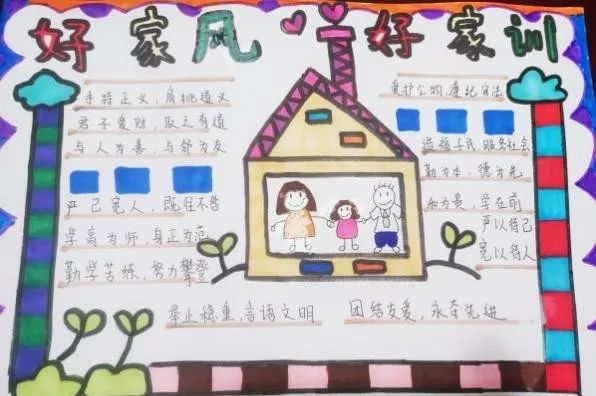 好家风 好家训
手持正义，肩挑道义
君子爱财，取之有道
与人为善，与邻为友
严己宽人，既往不咎
学高为师，身正为范
勤学苦练，努力攀登
爱护公物，遵纪守法
造福子民，服务社会
勤为本，德为先
和为贵，学在前
严以律己
宽以待人
举止稳重，言语文明
团结友爱，永争先进